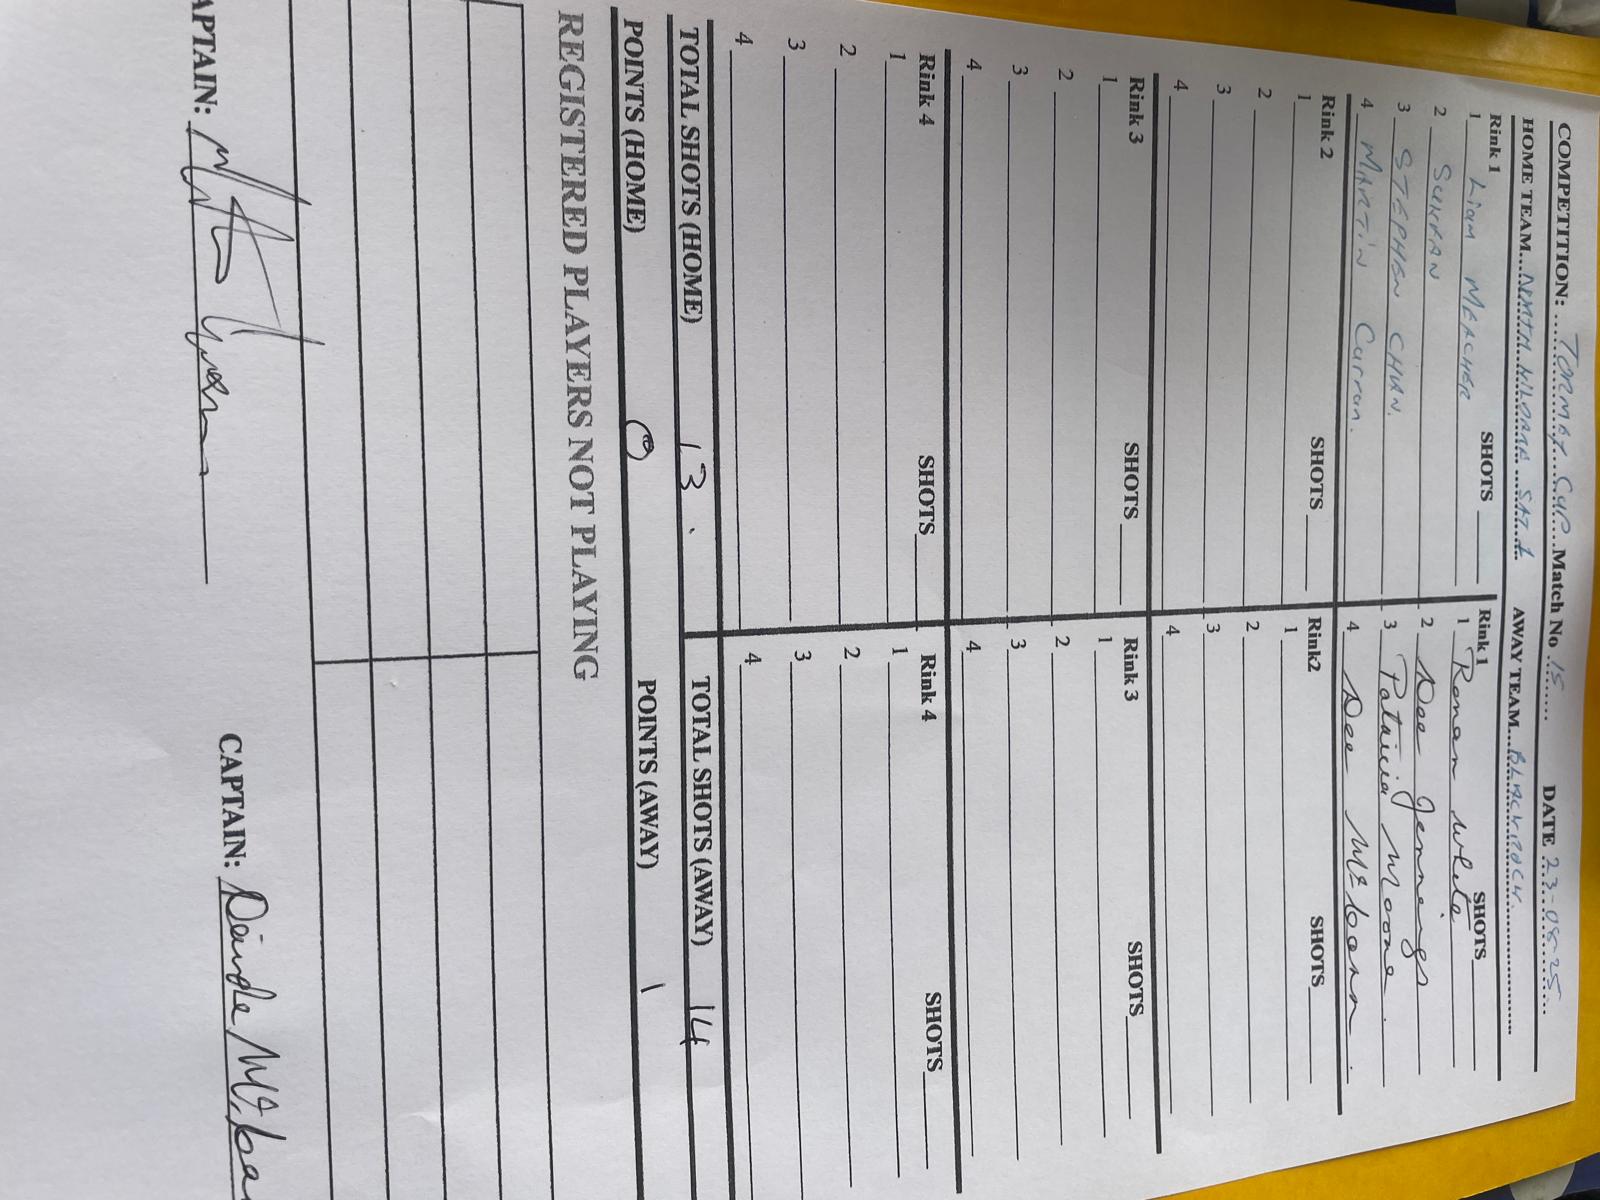 COMPETITION: TORMEY CUP Match No 15 DATE 23-08-25
HOME TEAM NORTH KILDARE SAT 1 AWAY TEAM BLACKROCK
Rink 1 SHOTS Rink 1 SHOTS
1 Liam MEAGHER 1 Ronan White
2 2 Dee Jennings
3 STEPHEN CHAN. 3 Patricia Moone.
4 MARTIN Curran. 4 Dee
Rink 2 SHOTS Rink2 SHOTS
1 1
2 2
3 3
4 4
Rink 3 SHOTS Rink 3 SHOTS
1 1
2 2
3 3
4 4
Rink 4 SHOTS Rink 4 SHOTS
1 1
2 2
3 3
4 4
TOTAL SHOTS (HOME) 13. TOTAL SHOTS (AWAY) 14
POINTS (HOME) 0 POINTS (AWAY) 1
REGISTERED PLAYERS NOT PLAYING
APTAIN: CAPTAIN: